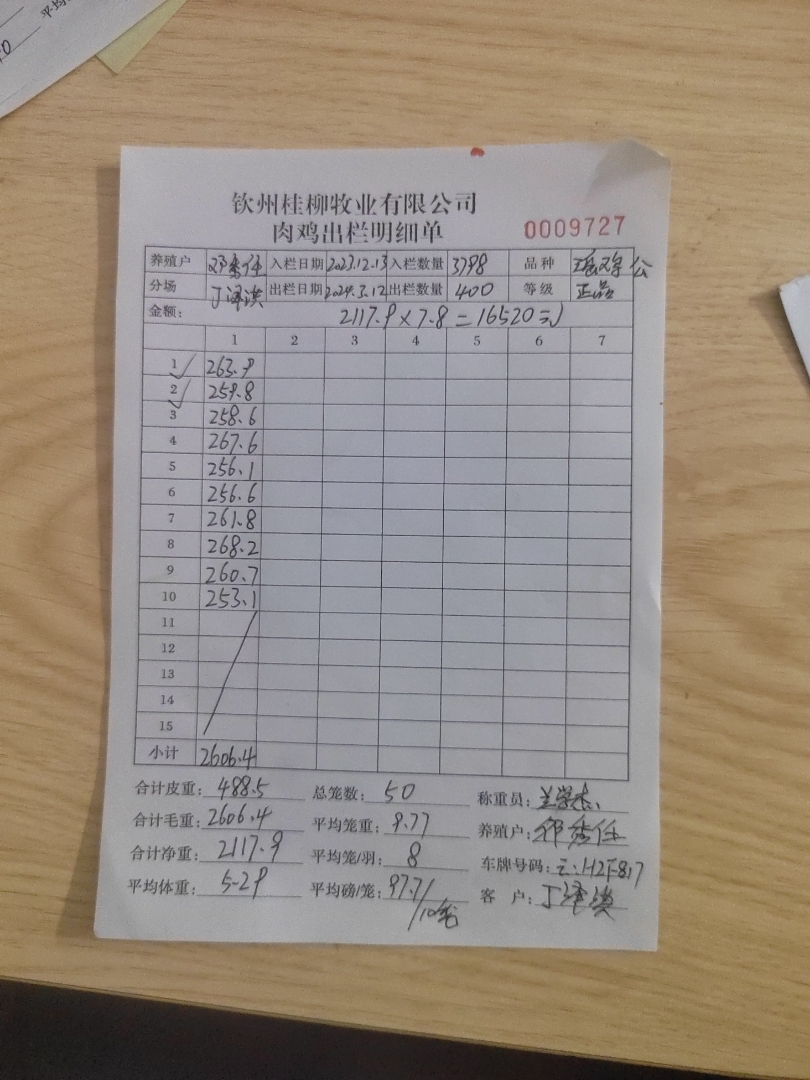 平均
钦州桂柳牧业有限公司
肉鸡出栏明细单 0009727
养殖户 邓秀任 入栏日期 2023.12.13 入栏数量 3798 品种 瑶鸡 公
分场 丁泽洪 出栏日期 2024.3.12 出栏数量 400 等级 正品
金额: 2117.9×7.8=16520元
1 2 3 4 5 6 7
1 263.9
2 259.8
3 258.6
4 267.6
5 256.1
6 256.6
7 261.8
8 268.2
9 260.7
10 253.1
11
12
13
14
15
小计 2606.4
合计皮重: 488.5 总笼数: 50 称重员:
合计毛重: 2606.4 平均笼重: 9.77 养殖户: 邓秀任
合计净重: 2117.9 平均笼/羽: 8 车牌号码:
平均体重: 5.29 平均磅/笼: 97.7/10笼 客 户: 丁泽洪